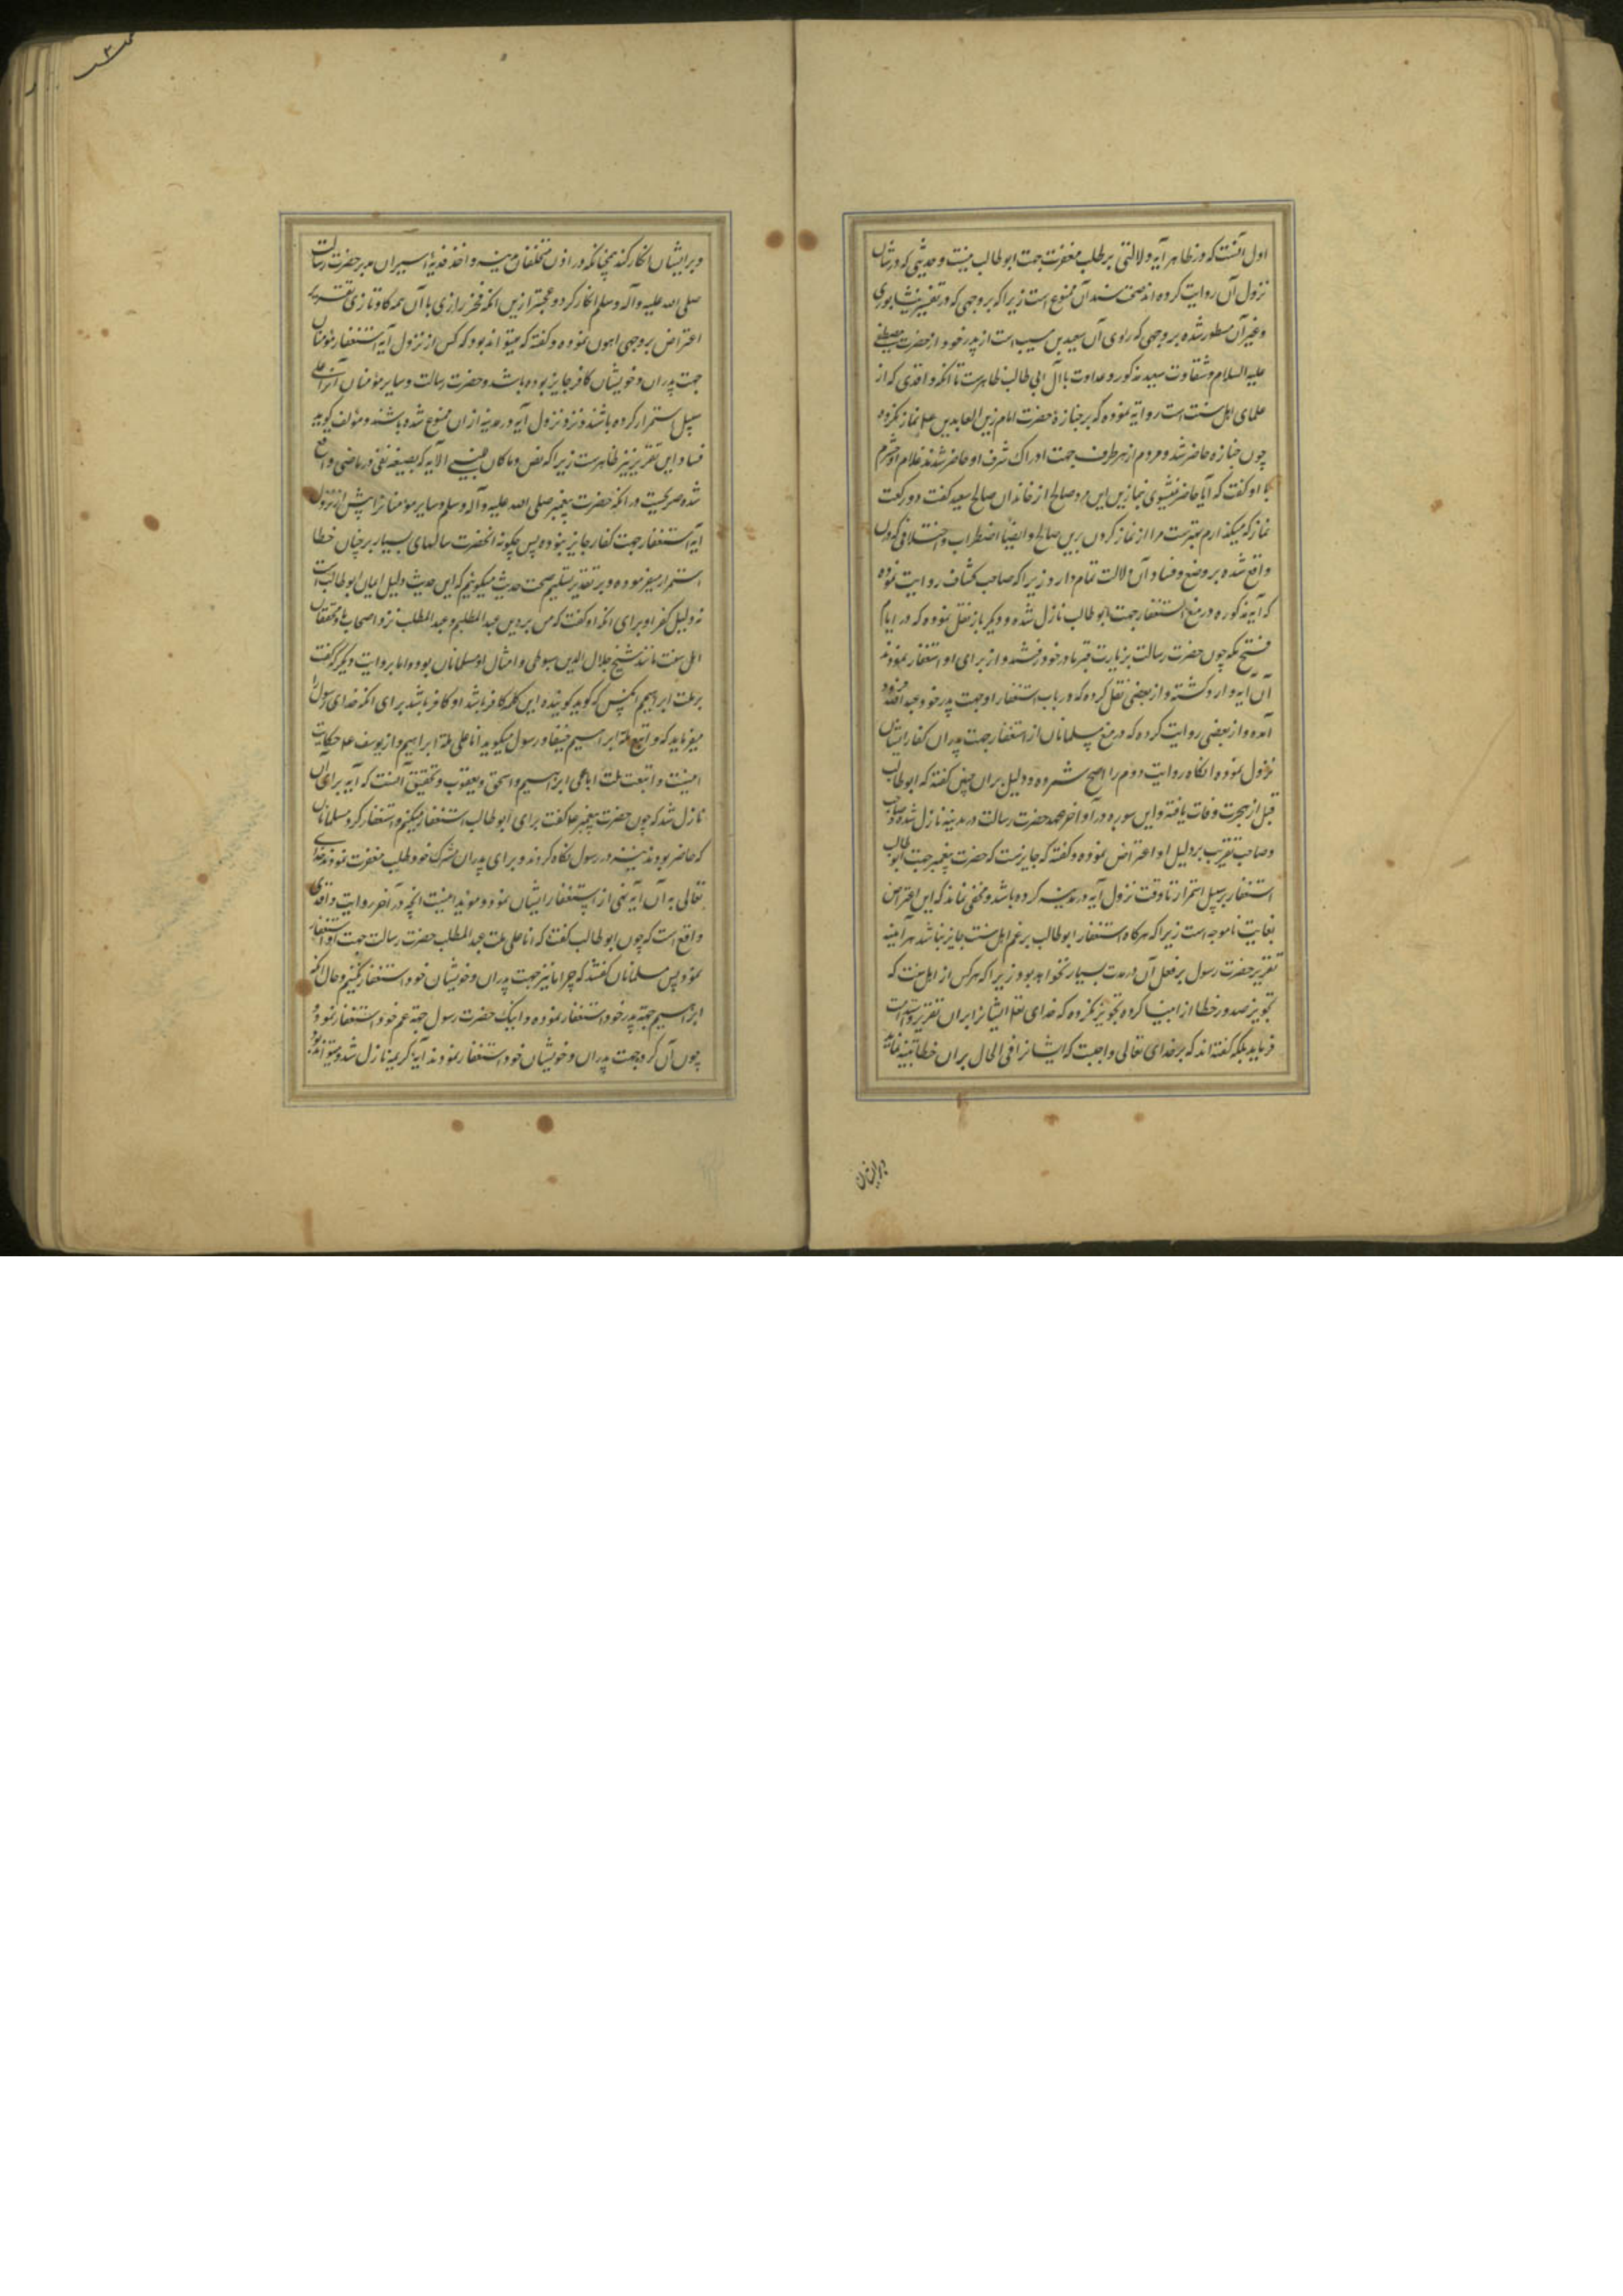 اول آنست که در ظاهر آیه دلالتی بر طلب مغفرت جهت ابوطالب نیست و حدیثی که در شان
نزول آن روایت کرده اند صحت سند آن ممنوع است زیرا که بر وجهی که در تفسیر نیشابوری
و غیر آن مسطور شده بر وجهی که راوی آن سعید بن مسیب است از پدر خود از حضرت مصطفی
علیه السلام و شقاوت سعید مذکور و عداوت با آل ابی طالب ظاهرست تا انکه واقدی که از
علمای اهل سنت است روایة نموده که بر جنازهٔ حضرت امام زین العابدین ع نماز نکرده
چون جنازه حاضر شد و مردم از هر طرف جهت ادراک شرف او حاضر شدند غلام او خشرم
با او گفت که آیا حاضر نمیشوی بنماز این مرد صالح از خاندان صالح سعید گفت دو رکعت
نماز که میکذارم بهترست مرا از نماز کردن برین صالح و ایضا اضطراب و اختلافی که در ان
واقع شده بر وضع و فساد آن دلالت تمام دارد زیرا که صاحب کشاف روایت نموده
که آیه مذکوره در منع استغفار جهت ابوطالب نازل شده و دیگر باز نقل نموده که در ایام
فتح مکه چون حضرت رسالت بزیارت قبر مادر خود رفتند و از برای او استغفار نمودند
آن آیه وارد کشته و از بعضی نقل کرده که در باب استغفار او جهت پدر خود عبد الله فرود
آمده و از بعضی روایت کرده که در منع مسلمانان از استغفار جهت پدران کفار ایشان
نزول نموده انکاه روایت دوم را اصح شمرده و دلیل بران چنین گفته که ابوطالب
قبل از هجرت وفات یافته و این سوره در آواخر عهد حضرت رسالت در مدینه نازل شده و صاحب
و صاحب تقریب بر دلیل او اعتراض نموده و گفته که جایزست که حضرت پیغمبر جهت ابوطالب
استغفار بر سبیل استمرار تا وقت نزول آیه در مدینه کرده باشد و مخفی نماند که این اعتراض
بغایت ناموجه است زیرا که هرکاه استغفار ابوطالب برعم اهل سنت جایز نباشد هر آینه
تقریر حضرت رسول بر فعل آن در مدت بسیار نخواهد بود زیرا که هرکس از اهل سنت که
تجویز صدور خطا از انبیا کرده تجویز نکرده که خدای تعالی ایشانرا بران تقریر و
فرماید بلکه گفته اند که بر خدای تعالی واجبست که ایشانرا فی الحال بران خطا تنبیه نماید
و بر ایشان
و بر ایشان انکار کند همچنانکه در اذن متخلفان مدینه و اخذ فدیهٔ اسیران بدر بر حضرت رسالت
صلی الله علیه و آله و سلم انکار کرد و عجبتر ازین انکه فخر رازی با آن همه کاوتازی تقریر
اعتراض بر وجهی اهون نموده و گفته که میتواند بود که کس از نزول آیه استغفار مؤمنان
جهت پدران و خویشان کافر جایز بوده باشد و حضرت رسالت و سایر مؤمنان آنرا علی
سبیل استمرار کرده باشند و نزد نزول آیه در مدینه از ان ممنوع شده باشند و مؤلف کوید
فساد این تقریر نیز ظاهرست زیرا که نص و ما کان للنبی الایه که بصیغه نفی در ماضی واقع
شده صریحست در انکه حضرت پیغمبر صلی الله علیه و آله و سلم و سایر مؤمنانرا پیش از نزول
آیه استغفار جهت کفار جایز نبوده پس چکونه انحضرت سالهای بسیار بر چنان خطا
استمرار میفرموده و بر تقدیر تسلیم صحت حدیث میکوئیم که این حدیث دلیل ایمان ابوطالب است
نه دلیل کفر او برای انکه او گفت که من بر دین عبد المطلبم و عبد المطلب نزد اصحاب ما و محققان
اهل سنت مانند شیخ جلال الدین سیوطی و امثال او مسلمانان بوده اما بروایت دیگر که گفت
بر ملت ابرهیم انکس که کوید کوینده این کلمه کافر باشد او کافر باشد برای انکه خدای رسول را
میفرماید که و اتبع ملة ابراهیم حنیفا و رسول میکوید انا علی ملة ابراهیم و از یوسف ع حکایت
اینست و اتبعت ملت ابائی ابراهیم و اسحق و یعقوب و تحقیق آنست که آیه برای آن
نازل شد که چون حضرت پیغمبر ع گفت برای ابوطالب استغفار میکنم و استغفار کرد مسلمانان
که حاضر بودند در رسول نکاه کردند و برای پدران مشرک خود طلب مغفرت نمودند خدای
تعالی به آن آیه نهی از استغفار ایشان نمود و مؤید اینست انچه در آخر روایت واقدی
واقع است که چون ابوطالب گفت که انا علی ملت عبد المطلب حضرت رسالت جهت او استغفار
نمود پس مسلمانان گفتند که چرا ما نیز جهت پدران و خویشان خود استغفار نکنیم و حال انکه
ابراهیم جهة پدر خود استغفار نموده و اینک حضرت رسول جهة عم خود استغفار نمود و
چون آن کروه جهت پدران و خویشان خود استغفار نمودند آیهٔ کریمه نازل شد و میتواند بود